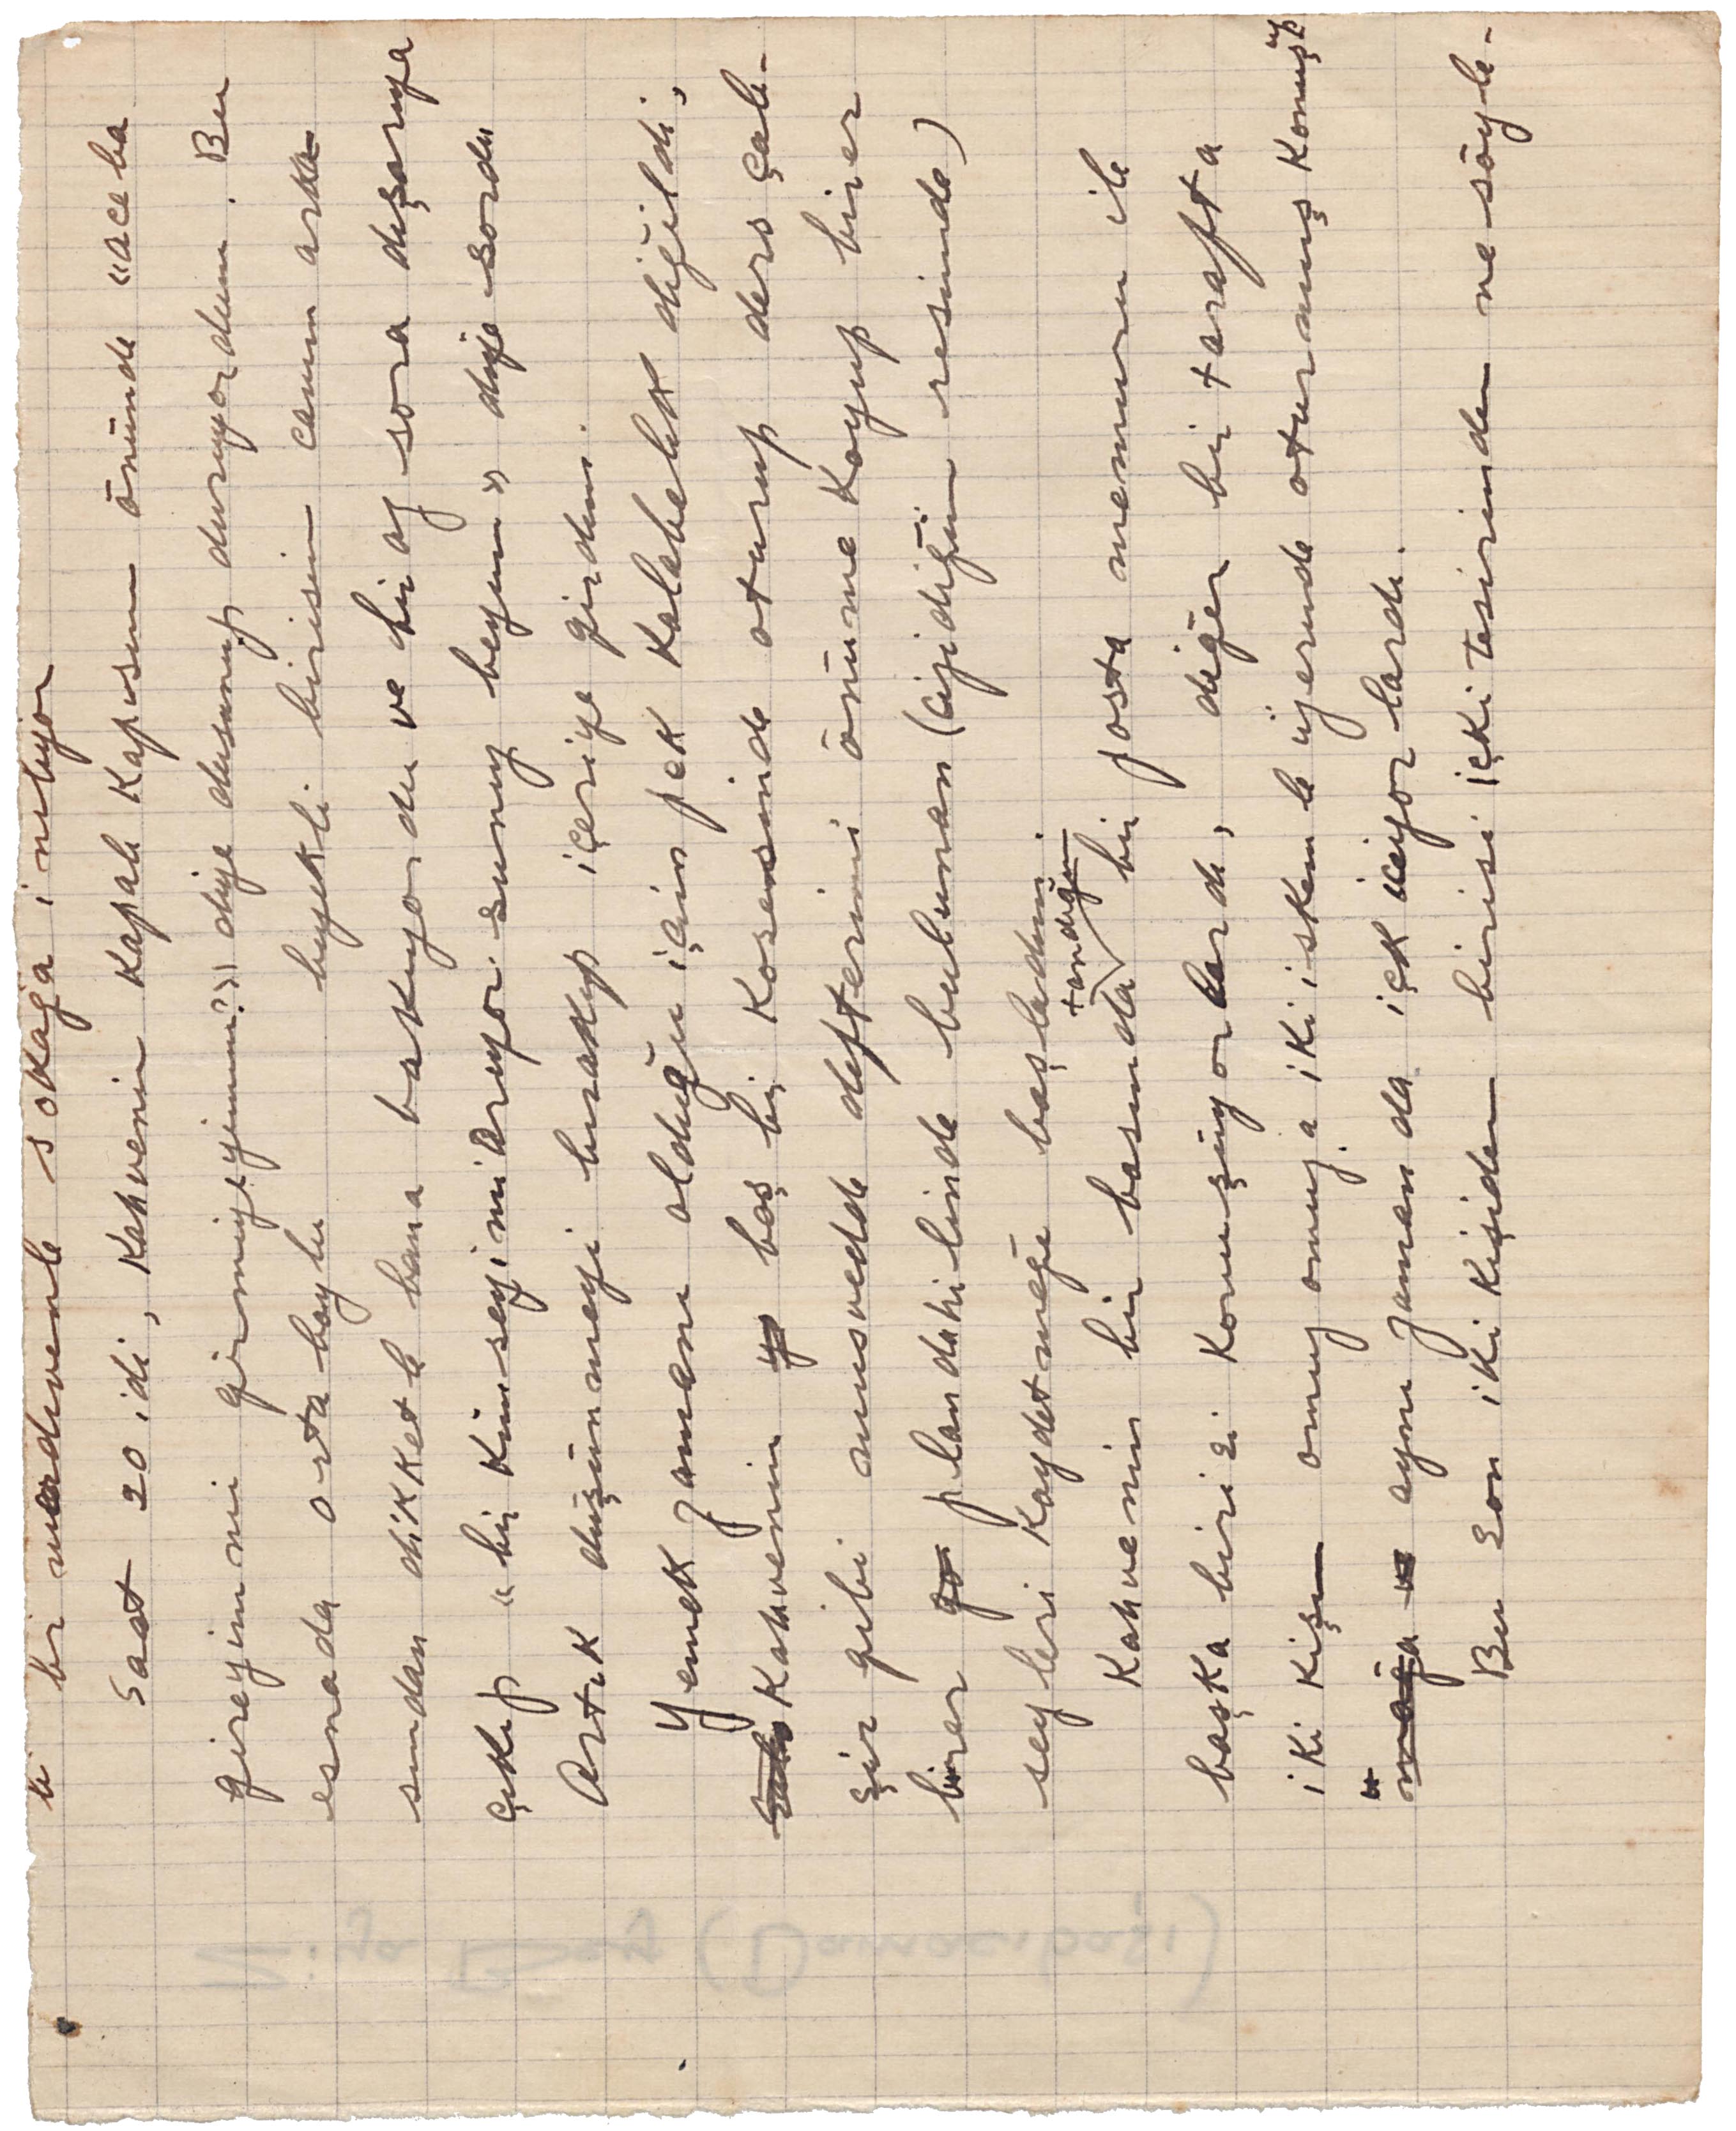 li bir merdivenle sokağa iniliyor
Saat 20 idi, Kahvenin Kapalı Kapısın önünde "aceba
gireyim mi girmiyeyimmi?" diye düşünüp duruyordum. Bu
esnada orta boylu bıyıklı birisin camın arka
sından dikkatle bana bakıyordu ve bir az sora dışarıya
çıkıp "bir Kimseyimi arıyorsunuz beyim" diye sordu
Artık düşünmeyi bırakıp içeriye girdim.
Yemek zamanı olduğu için pek Kalabalık değildi,
Kahvenin boş bir Kösesinde oturup ders çalı-
şır gibi musvedde defterimi önüme Koyup birer
birer plan dahilinde bulunan (çizidiğim resimde)
seyleri Kaydetmeğe başladım.
Kahvenin bir basında tandığım bir posta memuru ile
başka birisi Konuşuyorlardı, diğer bir tarafta
iki Kişi omuz omuza iki iskemle üzerinde oturmuş Konuşup
aynı zamanda içki içiyorlardı.
Bu son iki Kişiden birisi içki tesirinden ne söyle-
Ziya Bey (Damacıpaşi)